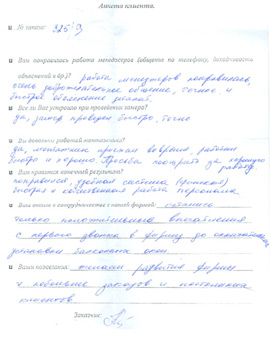 Анкета клиента.
№ заказа: 985/9
Вам понравилась работа менеджеров (общение по телефону, доходчивость
объяснений и др.)? работа менеджеров понравилась,
очень доброжелательное общение, точное и
быстрое объяснение деталей.
Все ли Вас устроило при проведении замера?
да, замер проведен быстро, точно
Вы довольны работой монтажников?
да, монтажники приехали вовремя, работали
быстро и хорошо. Просьба поощрить за хорошую
работу.
Вам нравится конечный результат?
понравился, удобная система
быстрая и качественная работа персонала
Ваш отзыв о сотрудничестве с нашей фирмой: остались
только положительные впечатления
с первого звонка в фирму до окончательной
установки балконных окон
Ваши пожелания: желаем развития фирмы
и побольше заказов и постоянных
клиентов
Заказчик: